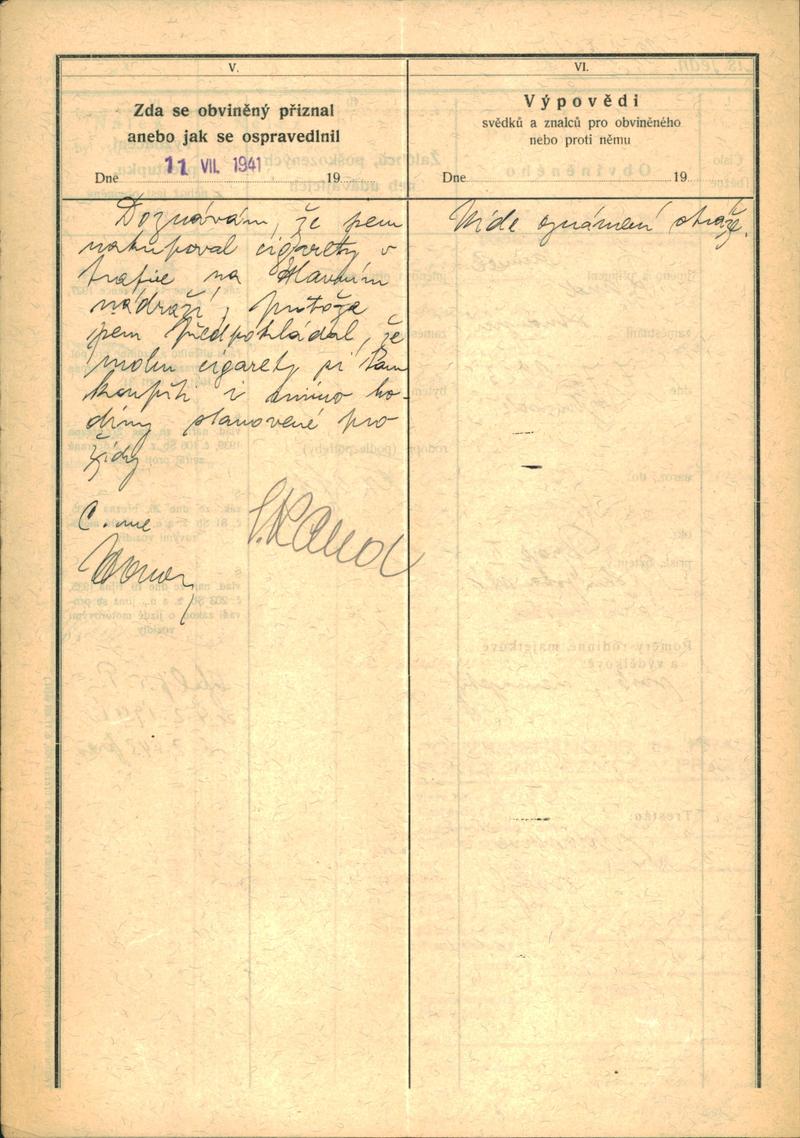 V.
Zda se obviněný přiznal
anebo jak se ospravedlnil
Dne 11 VII. 1941 19
Doznávám, že jsem
nakupoval cigarety v
trafice na Hlavním
nádraží, protože
jsem předpokládal, že
mohu cigarety si tam
koupiti i mimo ho-
diny stanovené pro
židy.
VI.
Výpovědi
svědků a znalců pro obviněného
nebo proti němu
Dne 19
Vide oznámení stráže.